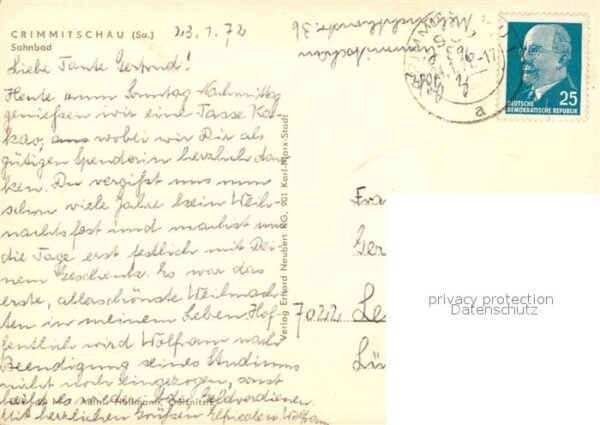 CRIMMITSCHAU (Sa.)
Sahnbad
23.1.72
Liebe Tante Gertrud!
Heute zum Sonntag Nachmittag
genießen wir eine Tasse Ka-
kao, wobei wir Dir als
gütigen Spenderin herzlich dan-
ken. Du vergißt uns nun
schon viele Jahre kein Weih-
nachtsfest und machst uns
die Tage erst festlich mit Dei-
nem Geschenke. Es war das
erste, allerschönste Weihnach-
ten in meinem Leben. Hof-
fentlich wird Wolfram nach
Beendigung seines Studiums
nicht noch eingezogen, sonst
heißt es wieder Geldverdienen.
Mit herzlichen Grüßen Elfriede u. Wolfram
Verlag Erhard Neubert KG, 901 Karl-Marx-Stadt
Crimmitschau
a
25
DEUTSCHE
DEMOKRATISCHE REPUBLIK
Fra
Ger
7022 Le
privacy protection
Datenschutz